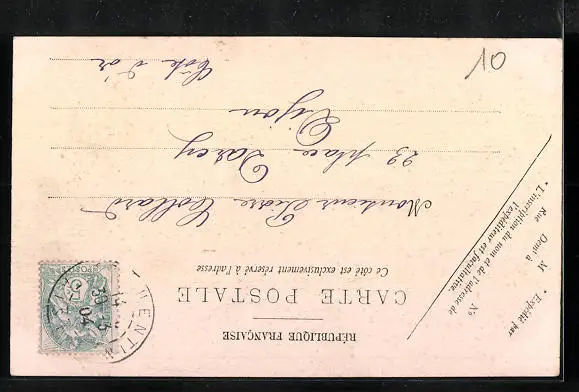 RÉPUBLIQUE FRANÇAISE
CARTE POSTALE
Ce côté est exclusivement réservé à l'adresse
Monsieur Pierre Collard
23 place Darcy
Dijon
Côte d'or
• Expédié par
M
Demt à
Rue
No
• L'inscription du nom et de l'adresse de
l'expéditeur est facultative.
POSTES
04
10